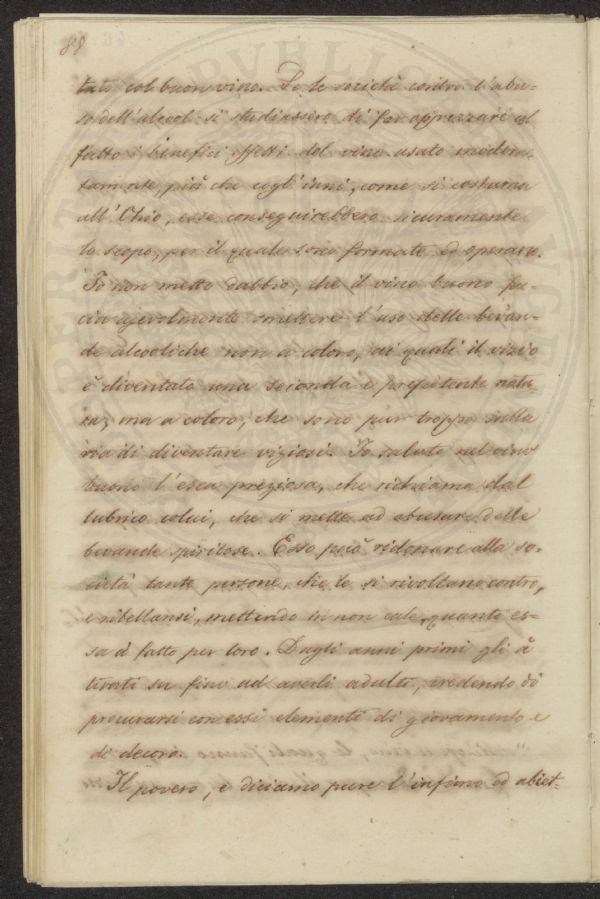 88
tati col buon vino. Se le società contro l'abu-
so dell'alcool si studiassero di far apprezzare col
fatto i benefici effetti del vino usato modera-
tamente, più che cogl'inni, come si costuma
all'Ohio, esse conseguirebbero sicuramente
lo scopo, per il quale sono formate ed operare.
Io non metto dubbio, che il vino buono fac-
cia agevolmente smettere l'uso delle bevan-
de alcooliche non a coloro, ai quali il vizio
è diventato una seconda e prepotente natu-
ra, ma a coloro, che sono pur troppo sulla
via di diventare viziosi. Io saluto nel vino
buono l'esca preziosa, che richiama dal
lubrico colui, che si mette ad abusare delle
bevande spiritose. Esso può ridonare alla so-
cietà tante persone, che le si rivoltano contro,
e ribellansi, mettendo in non cale, quanto es-
sa à fatto per loro. Dagli anni primi gli à
tirati su fino ad averli adulti, credendo di
procurarsi con essi elementi di giovamento e
di decoro.
Il povero, e diciamo pure l'infimo ed abiet-